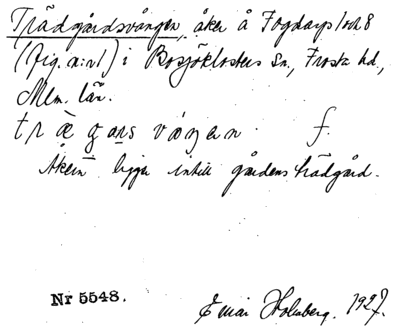 Trädgårdsvången, åker å Fogdarp 1 och 8
(fig. n:r 1) i Bosjöklosters Sn., Frosta hd,
Mlm. län.
træ gans váŋen. f.
Åkern ligger intill gårdens trädgård.
Nr 5548. Einar Holmberg. 1927.